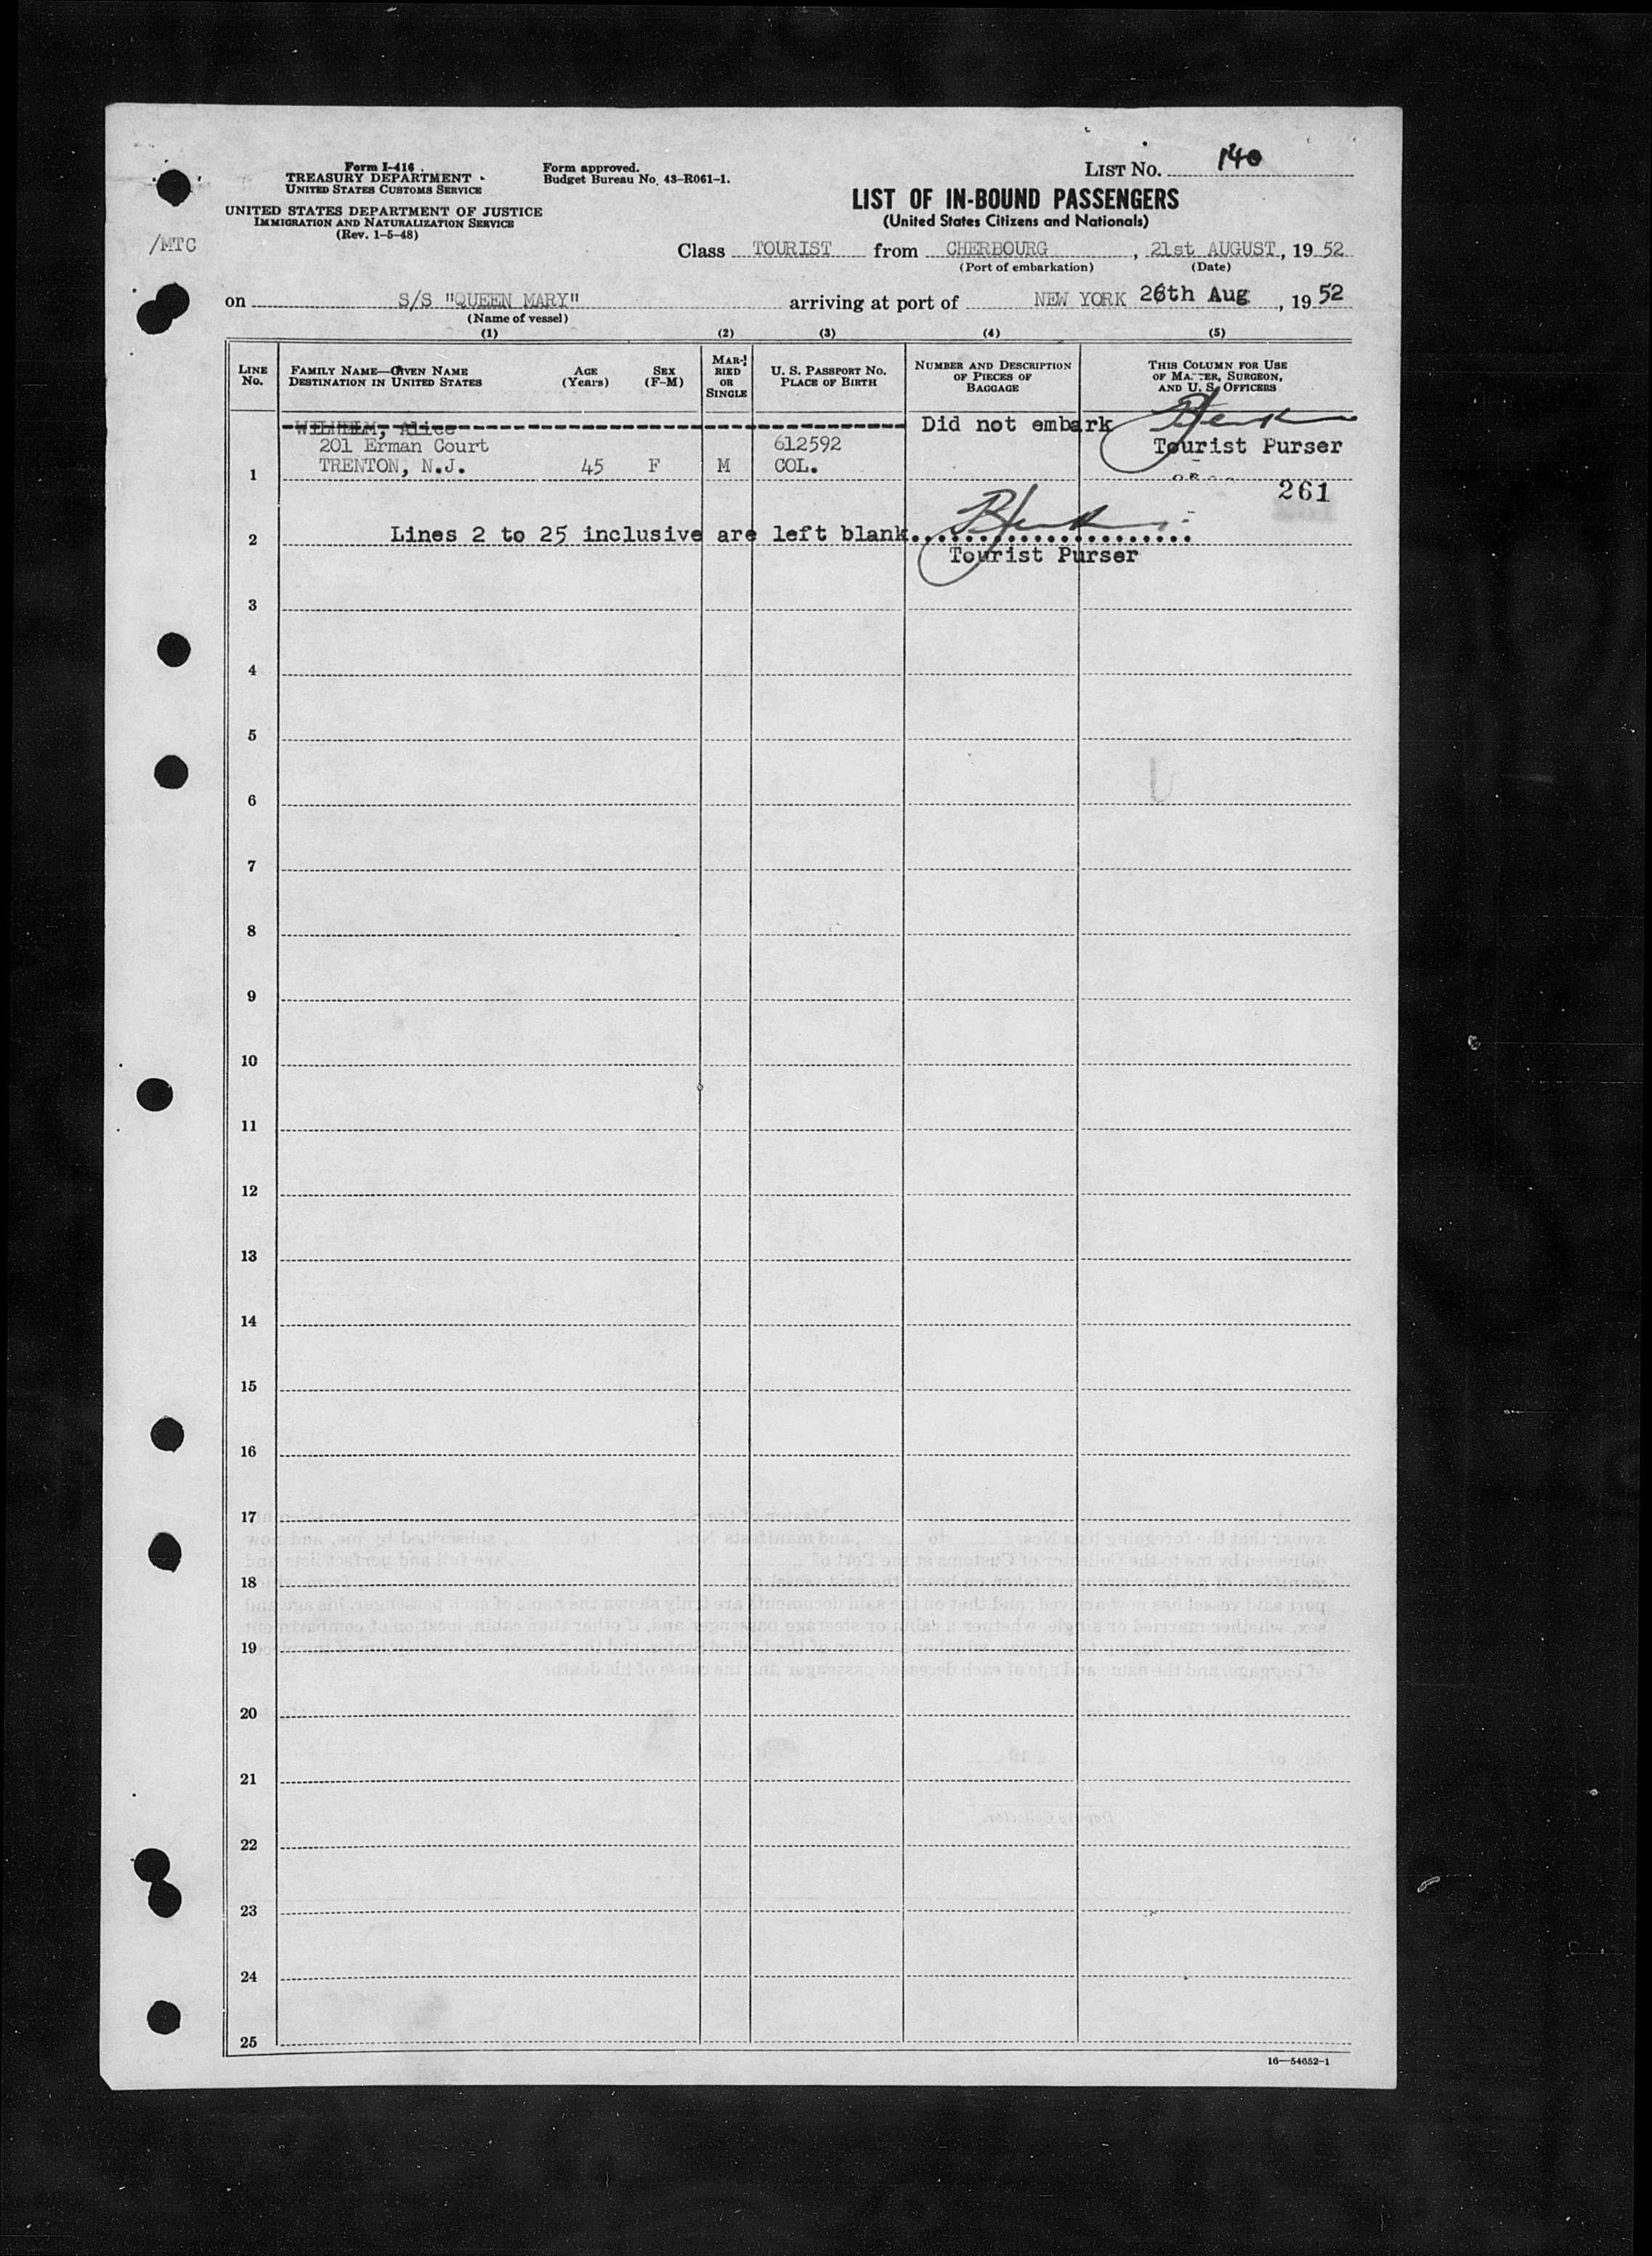 Form I-416
TREASURY DEPARTMENT
UNITED STATES CUSTOMS SERVICE
UNITED STATES DEPARTMENT OF JUSTICE
IMMIGRATION AND NATURALIZATION SERVICE
(Rev. 1-5-48)
/MTC
Form approved.
Budget Bureau No. 43-R061-1.
LIST NO. 140
LIST OF IN-BOUND PASSENGERS
(United States Citizens and Nationals)
Class TOURIST from CHERBOURG, 21st AUGUST, 19 52
(Port of embarkation) (Date)
on S/S "QUEEN MARY" arriving at port of NEW YORK 26th Aug, 19 52
(Name of vessel)
(1) (2) (3) (4) (5)
LINE NO.
FAMILY NAME—GIVEN NAME
DESTINATION IN UNITED STATES
AGE (Years)
SEX (F-M)
MARRIED OR SINGLE
U. S. PASSPORT NO.
PLACE OF BIRTH
NUMBER AND DESCRIPTION OF PIECES OF BAGGAGE
THIS COLUMN FOR USE OF MASTER, SURGEON, AND U. S. OFFICERS
WILHELM, Alice Did not embark
201 Erman Court 612592 Tourist Purser
1 TRENTON, N.J. 45 F M COL.
261
2 Lines 2 to 25 inclusive are left blank......................
Tourist Purser
3
4
5
6
7
8
9
10
11
12
13
14
15
16
17
18
19
20
21
22
23
24
25
16—54652-1